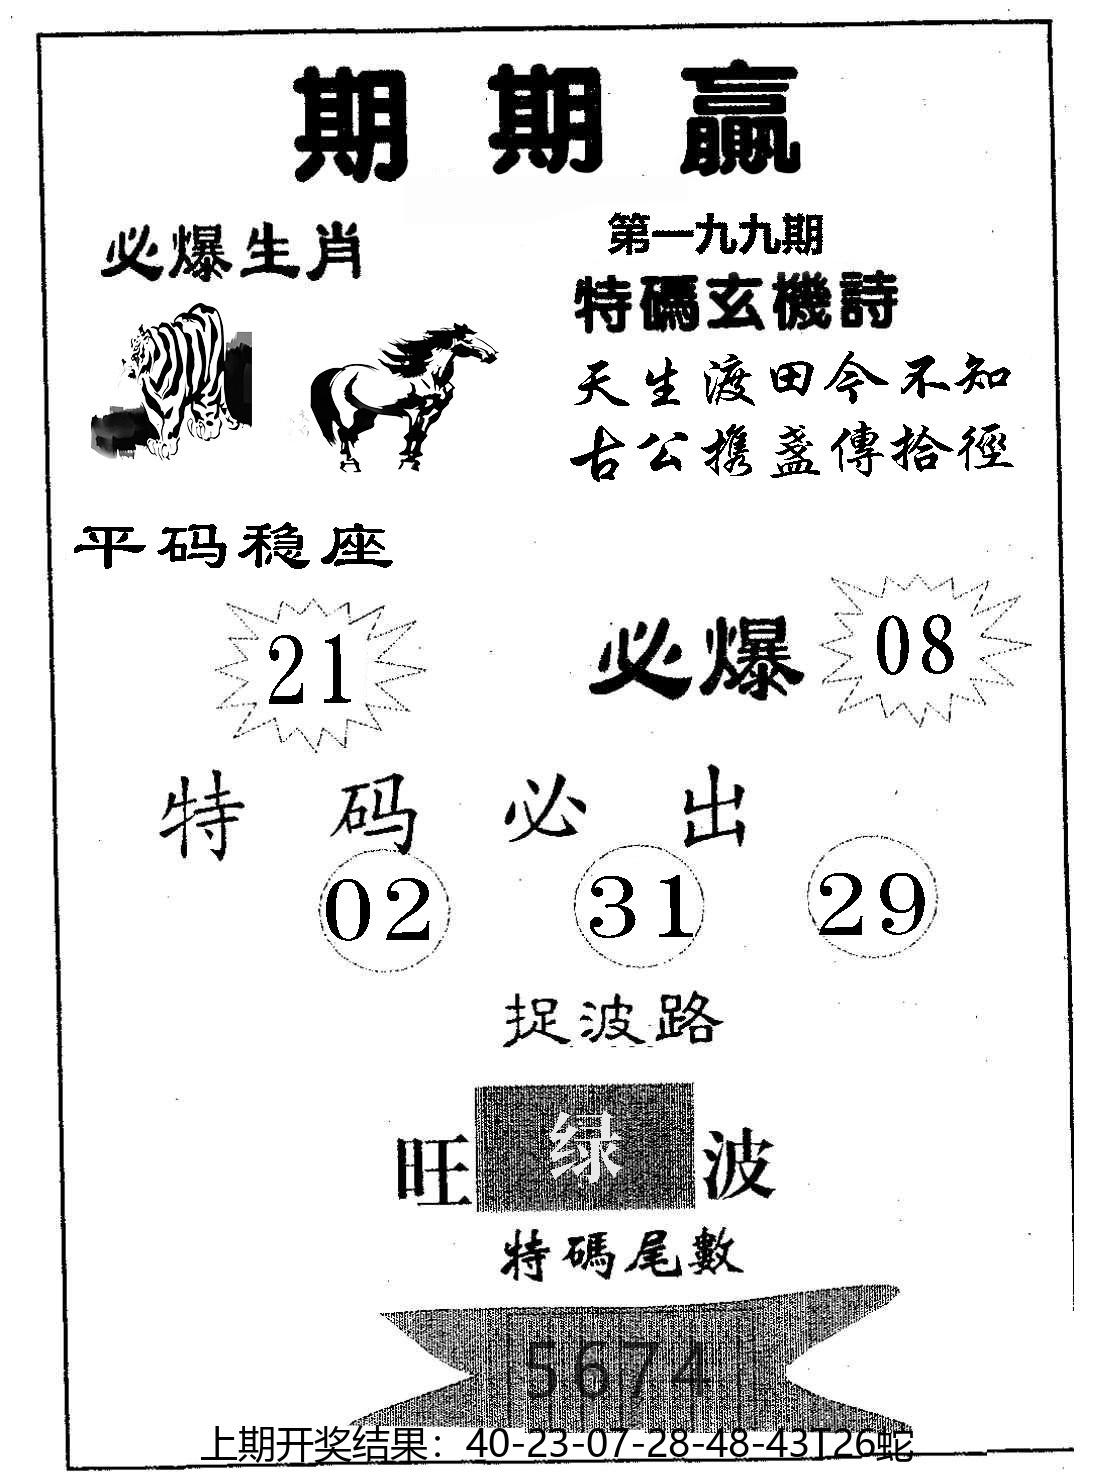 期期赢
必爆生肖
第一九九期
特碼玄機詩
天生渡田今不知
古公携盏傳拾徑
平码稳座
21
必爆
08
特码必出
02 31 29
捉波路
旺绿波
特碼尾數
5674
上期开奖结果：40-23-07-28-48-43T26蛇